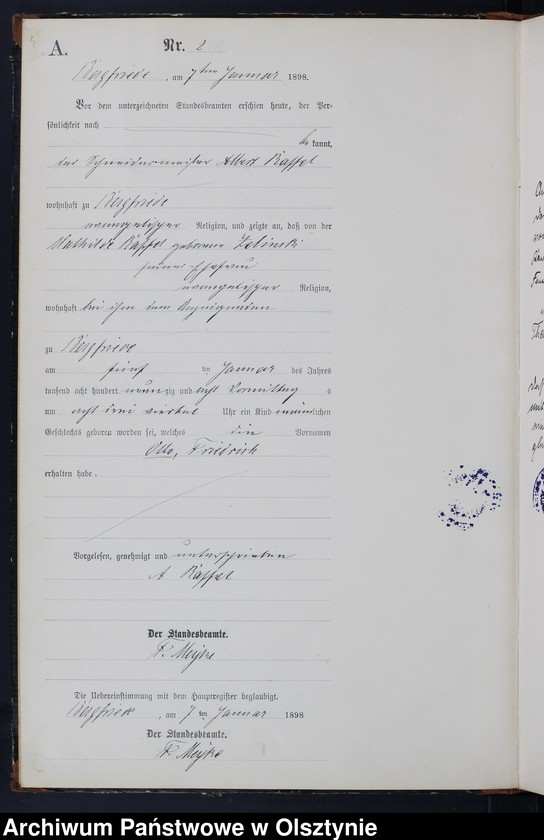 A.
Nr. 2
Bergfriede, am 7ten Januar 1898.
Vor dem unterzeichneten Standesbeamten erschien heute, der Per-
sönlichkeit nach
be kannt,
der Schneidermeister Albert Kassel
wohnhaft zu Bergfriede
evangelischer Religion, und zeigte an, daß von der
Mathilde Kassel geborene Zelinski
seiner Ehefrau
evangelischer Religion,
wohnhaft bei ihm dem Anzeigenden
zu Bergfriede
am fünf ten Januar des Jahres
tausend acht hundert neunzig und acht Vormittag s
um acht drei viertel Uhr ein Kind männlichen
Geschlechts geboren worden sei, welches die Vornamen
Otto, Friedrich
erhalten habe.
Vorgelesen, genehmigt und unterschrieben
A Kassel
Der Standesbeamte.
Die Uebereinstimmung mit dem Hauptregister beglaubigt.
Bergfriede, am 7 ten Januar 1898
Der Standesbeamte.
Archiwum Państwowe w Olsztynie